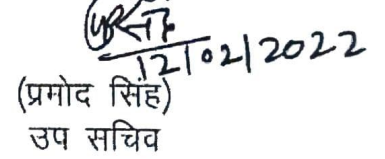 12/02/2022
(प्रमोद सिंह)
उप सचिव